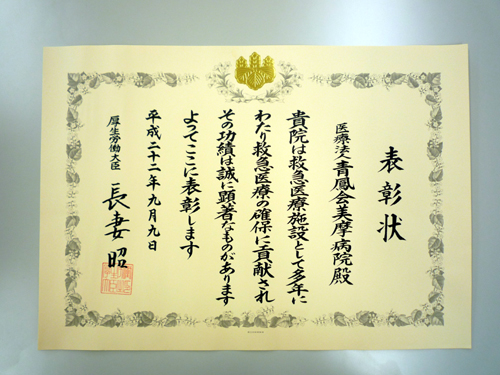 表彰状
医療法人青鳳会美摩病院殿
貴院は救急医療施設として多年に
わたり救急医療の確保に貢献され
その功績は誠に顕著なものがあります
よってここに表彰します
平成二十二年九月九日
厚生労働大臣
長妻昭